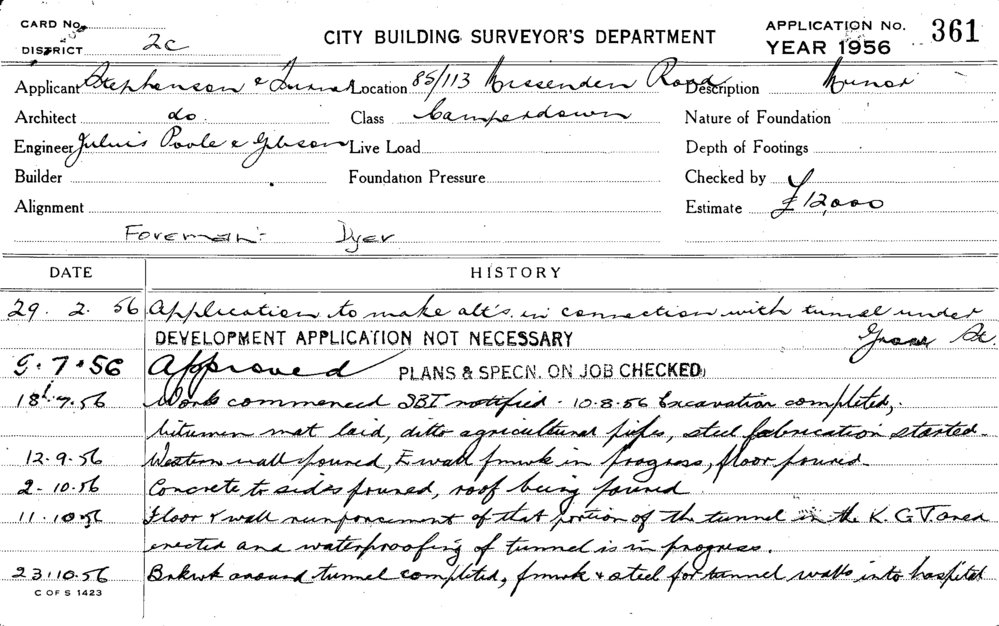 CARD No.
DISTRICT 2c
CITY BUILDING SURVEYOR'S DEPARTMENT
APPLICATION No. 361
YEAR 1956
Applicant Stephenson & Turner Location 85/113 Missenden Road Description Minor
Architect do. Class Camperdown Nature of Foundation
Engineer Julius Poole & Gibson Live Load Depth of Footings
Builder Foundation Pressure Checked by
Alignment Estimate £12,000
Foreman: Dyer
DATE HISTORY
29. 2. 56 Application to make alt's. in connection with tunnel under
DEVELOPMENT APPLICATION NOT NECESSARY Grose St.
9.7.56 Approved PLANS & SPECN. ON JOB CHECKED
18.7.56 Work commenced SBI notified. 10.8.56 Excavation completed,
bitumen mat laid, ditto agricultural pipes, steel fabrication started
12.9.56 Western wall poured, E wall fmwk in progress, floor poured.
2.10.56 Concrete to sides poured, roof being poured
11.10.56 Floor & wall reinforcement of that portion of the tunnel in the K.G.V. area
erected and waterproofing of tunnel is in progress.
23.10.56 Brkwk around tunnel completed, fmwk & steel for tunnel walls into hospital
C OF S 1423